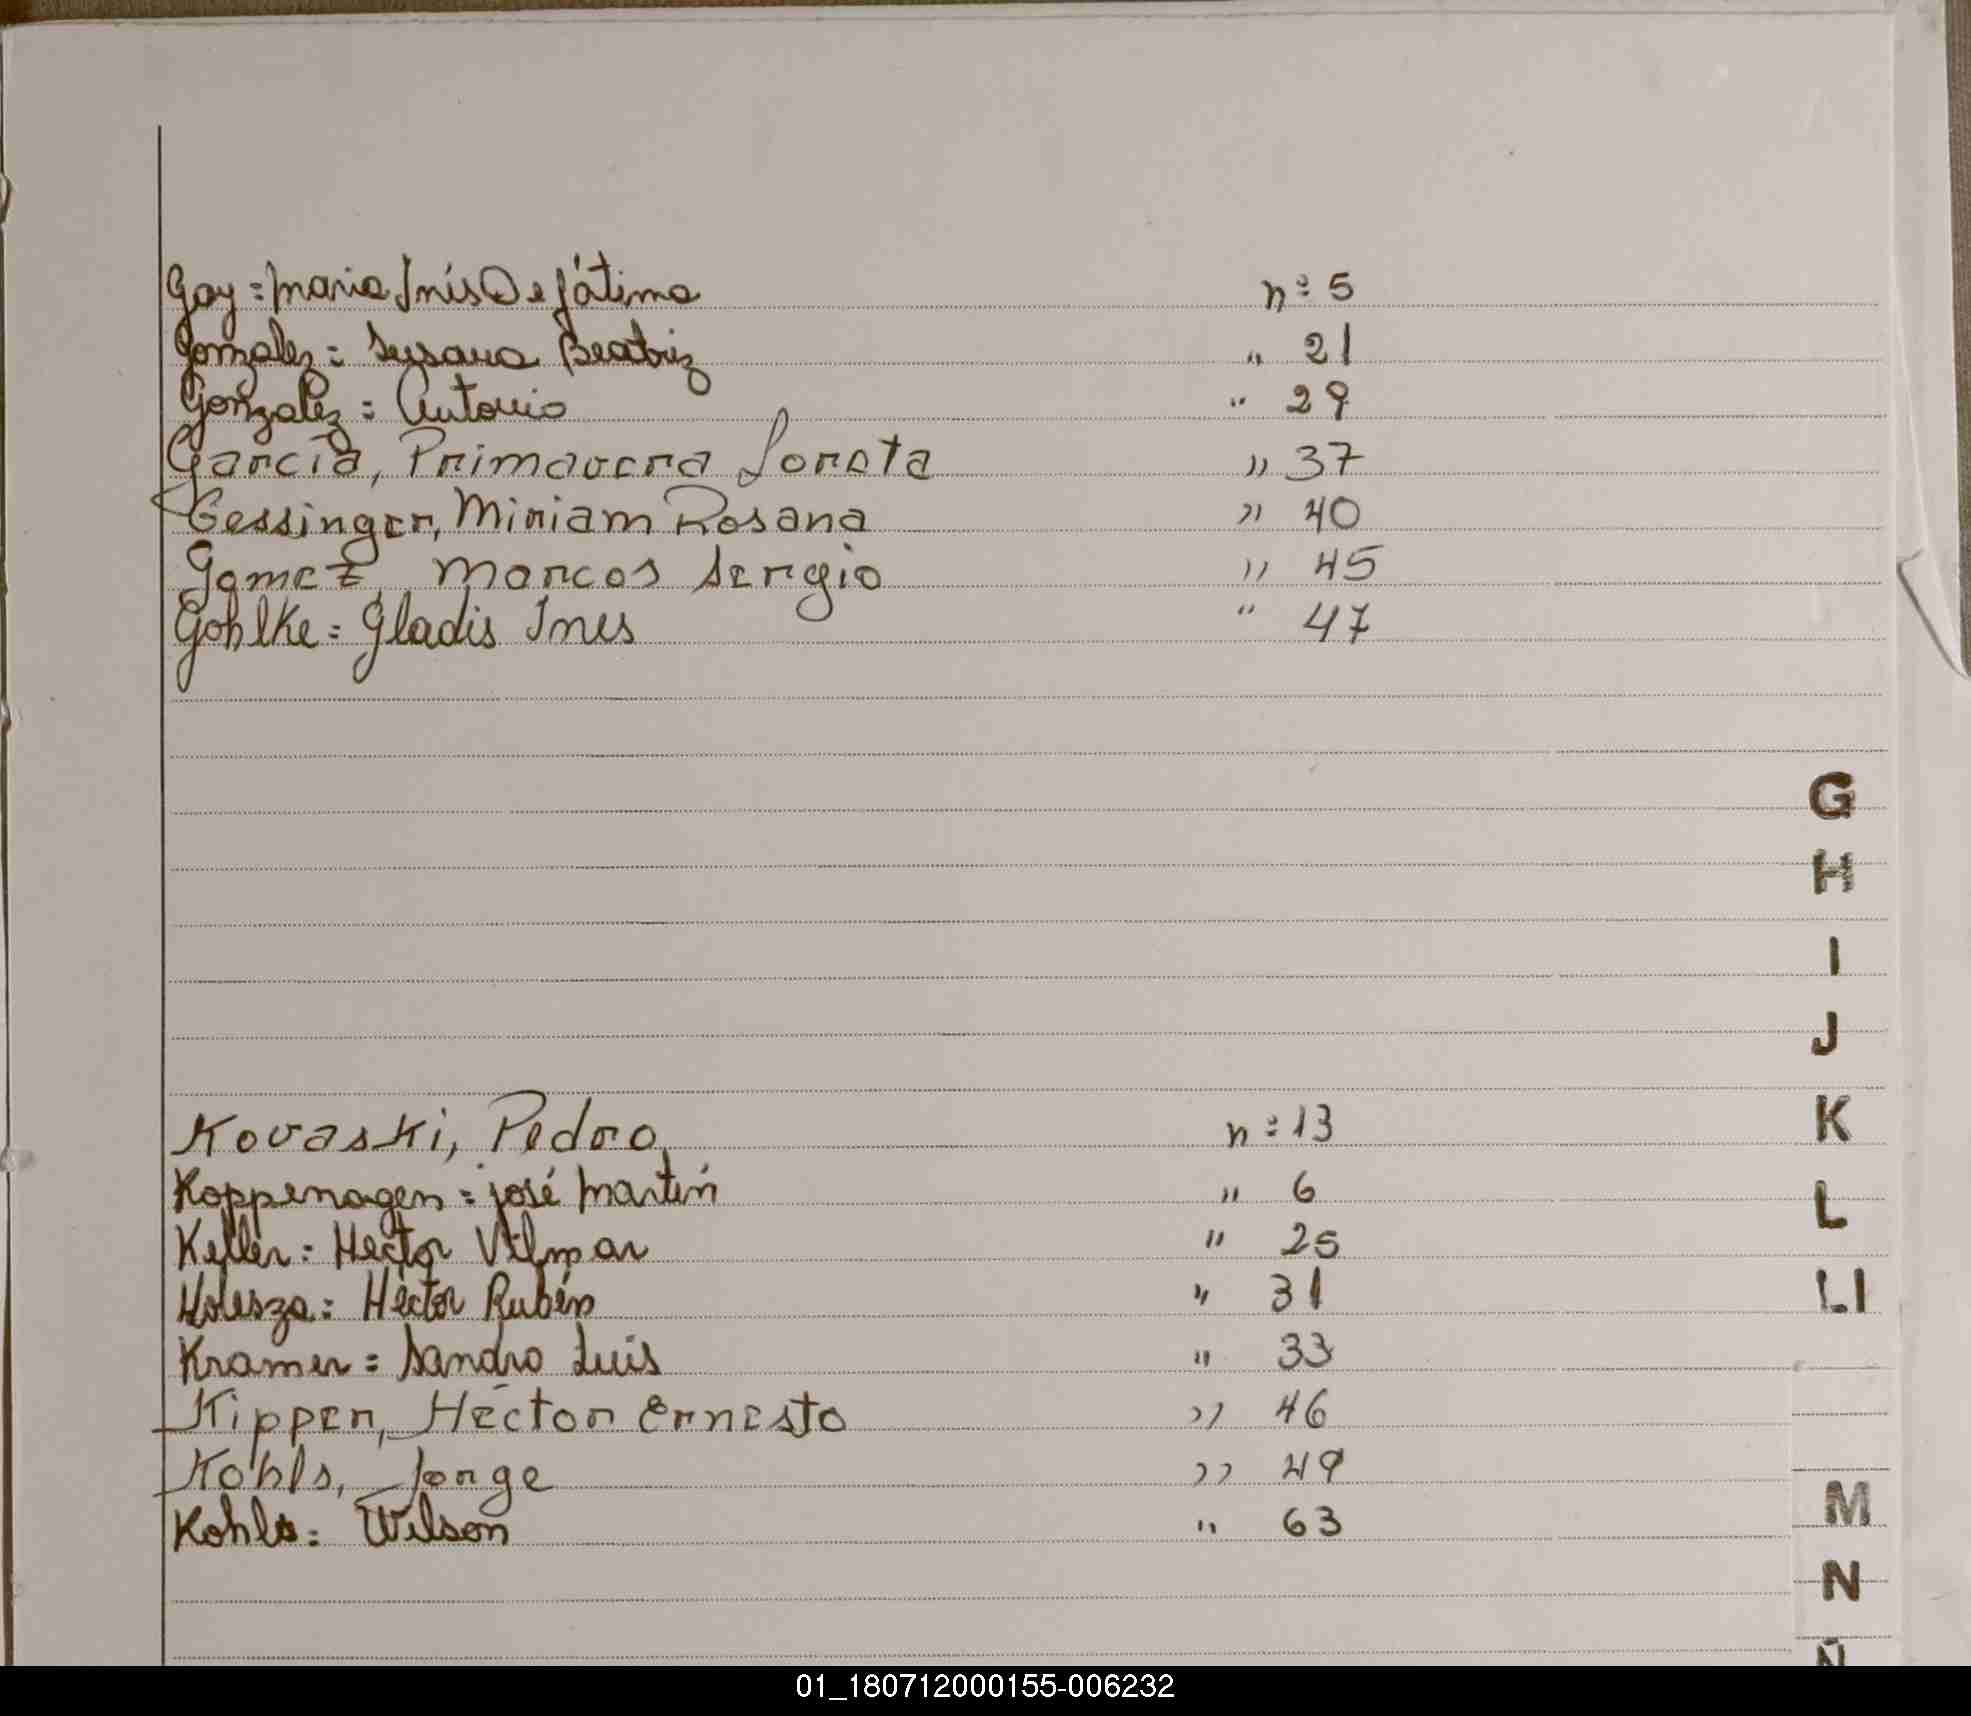 Goy = Maria Inís De Fátima n° 5
Gonzalez = Susana Beatriz " 21
Gonzalez = Antonio " 29
García, Primavera Loreta " 37
Gessinger, Miriam Rosana " 40
Gomez, Marcos Sergio " 45
Gohlke = Gladis Ines " 47
G
H
I
J
Kovaski, Pedro n° 13
K
Koppenagen = José Martín " 6
L
Keller = Hector Vilmar " 25
Kolesza = Héctor Rubén " 31
LI
Kramer = Sandro Luis " 33
Kipper, Héctor Ernesto " 46
Kohls, Jorge " 49
Kohls = Wilson " 63
M
N
Ñ
01_180712000155-006232